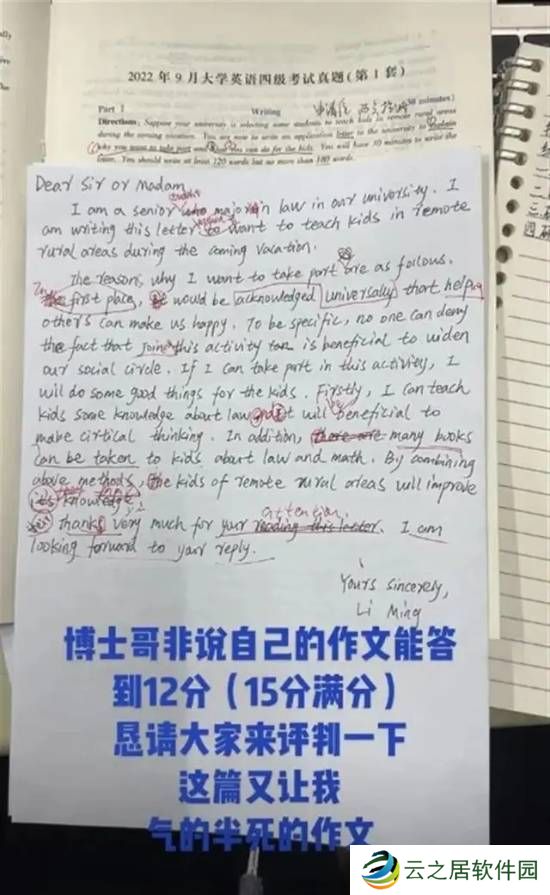 2022 年 9 月大学英语四级考试真题(第 1 套)
Part I Writing (30 minutes)
Directions: Suppose your university is selecting some students to teach kids in remote rural areas
during the coming vacation. You are now to write an application letter to the university to explain
why you want to take part and what you can do for the kids. You will have 30 minutes to write the
letter. You should write at least 120 words but no more than 180 words.
Dear Sir or Madam
I am a senior who major in law in our university. I
am writing this letter to want to teach kids in remote
rural areas during the coming vacation.
The reasons why I want to take part are as follows.
first place, would be acknowledged universally that helping
others can make us happy. To be specific, no one can deny
the fact that join this activity is beneficial to widen
our social circle. If I can take part in this activity, I
will do some good things for the kids. Firstly, I can teach
kids some knowledge about law and it will beneficial to
make cirtical thinking. In addition, there are many books
can be taken to kids about law and math. By combining
above methods, the kids of remote rural areas will improve
its knowledge.
attention
thanks very much for your reading this letter. I am
looking forward to your reply.
Yours sincerely,
Li Ming
博士哥非说自己的作文能答
到12分(15分满分)
恳请大家来评判一下
这篇又让我
气的半死的作文
云之居软件园